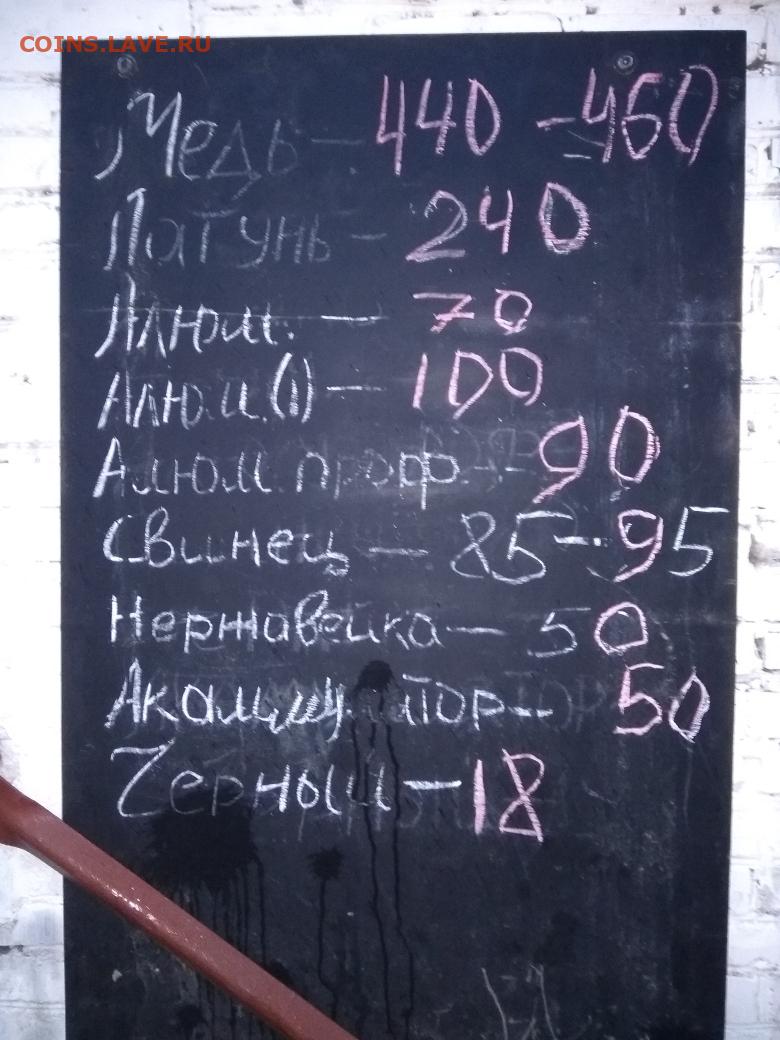 COINS.LAVE.RU
Медь - 440 - 460
Латунь - 240
Алюм. - 70
Алюм.(1) - 100
Алюм. проф. - 90
Свинец - 85 - 95
Нержавейка - 50
Акаммулятор - 50
Черный - 18